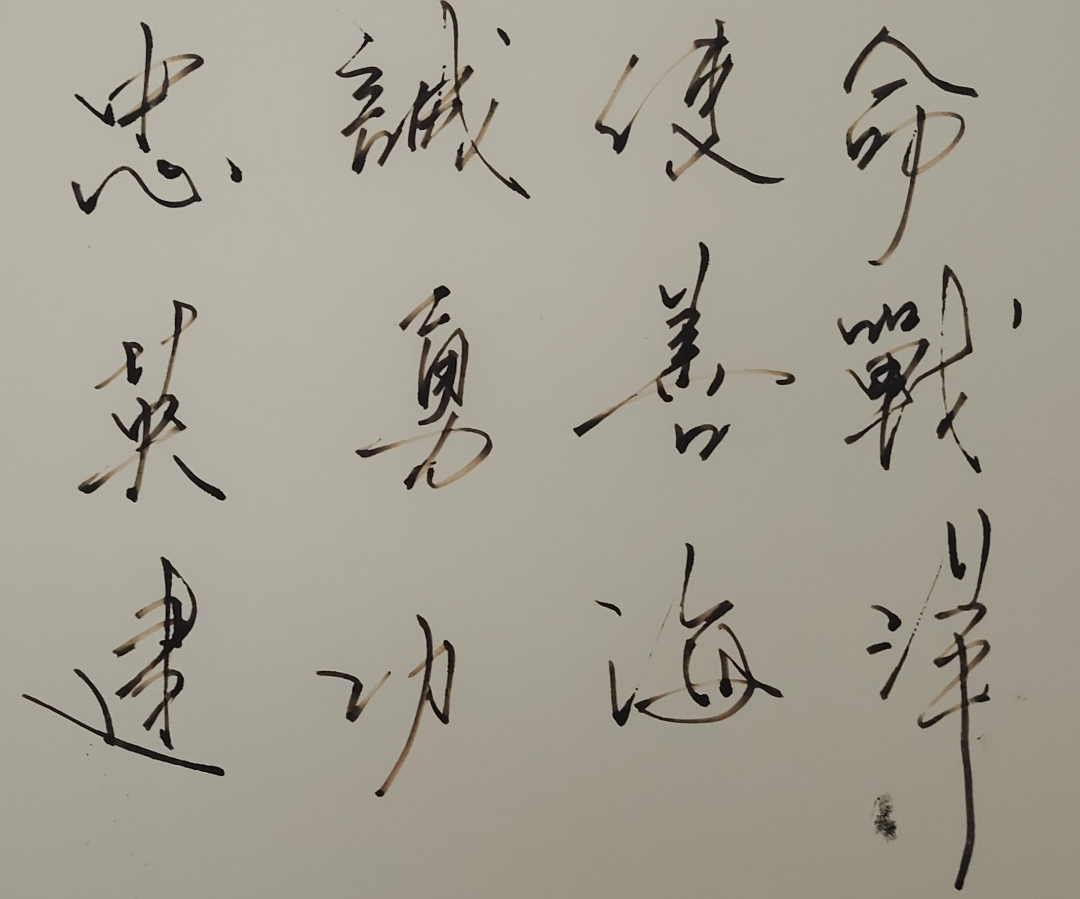 忠誠使命
英勇善戰
建功海洋